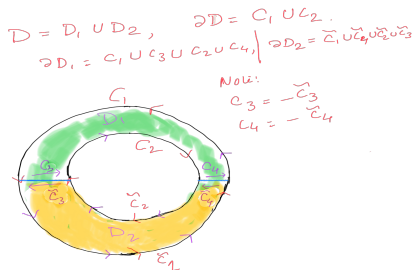 D = D₁ ∪ D₂, ∂D = C₁ ∪ C₂.
∂D₁ = C₁ ∪ C₃ ∪ C₂ ∪ C₄, | ∂D₂ = C̃₁ ∪ C̃₄ ∪ C̃₂ ∪ C̃₃
Noti:
C₃ = − C̃₃
C₄ = − C̃₄
C₁
D₁
C₂
C₃
C₄
C̃₃
C̃₂
C̃₄
D₂
C̃₁